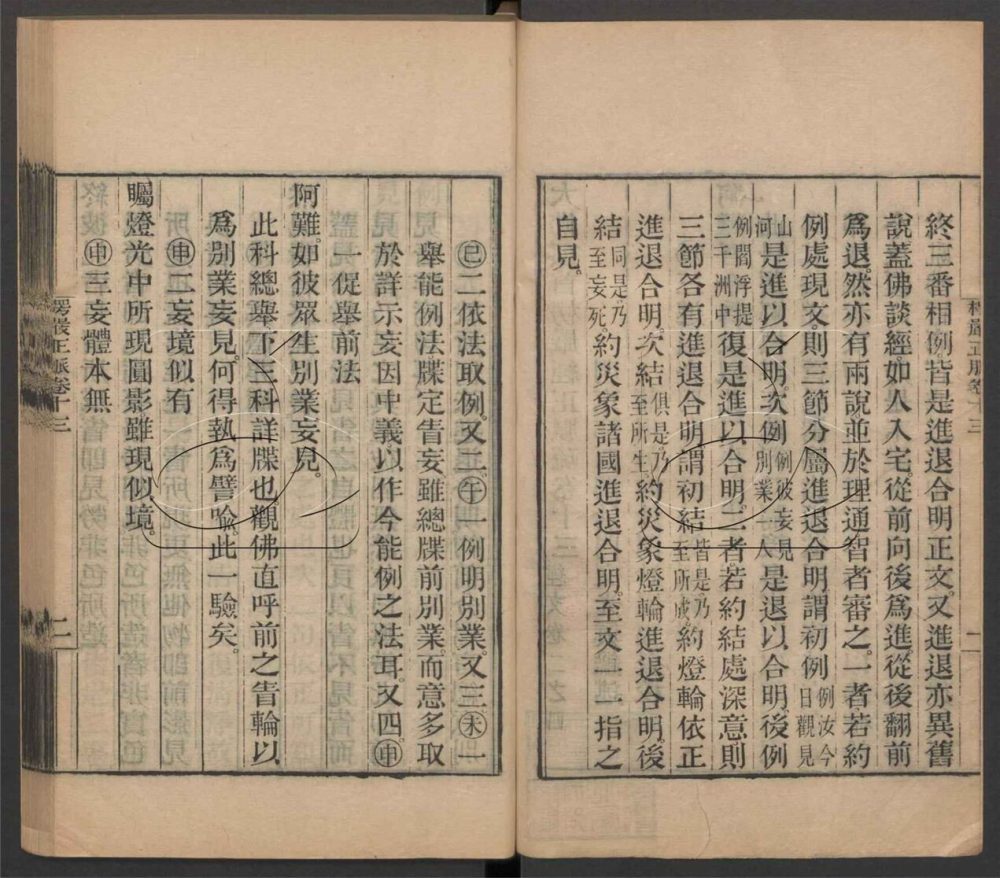 終三番相例皆是進退合明正文又進退亦異舊
說蓋佛談經如人入宅從前向後爲進從後翻前
爲退然亦有兩說並於理通智者審之一者若約
例處現文則三節分屬進退合明謂初例例汝今日觀見
山河是進以合明次例例彼妄見別業一人是退以合明後例
例閻浮提三千洲中復是進以合明二者若約結處深意則
三節各有進退合明謂初結皆是乃至所成約燈輪依正
進退合明次結俱是乃至所生約災象燈輪進退合明後
結同是乃至妄死約災象諸國進退合明至文一一指之
自見
楞嚴正脈卷十三
二
㊁二依法取例又二㊌一例明別業又三㊍一
舉能例法牒定眚妄雖總牒前別業而意多取
於詳示妄因中義以作今能例之法耳又四㊥
一促舉前法
阿難如彼眾生別業妄見
此科總舉下三科詳牒也觀佛直呼前之眚輪以
爲別業妄見何得執爲譬喻此一驗矣
㊥二妄境似有
矚燈光中所現圓影雖現似境
㊥三妄體本無
楞嚴正脈卷十三
二